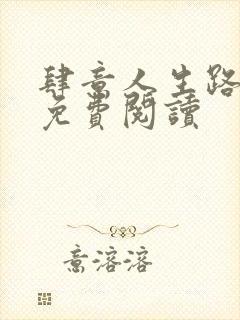 肆意人生路
免費閱讀
意溶溶